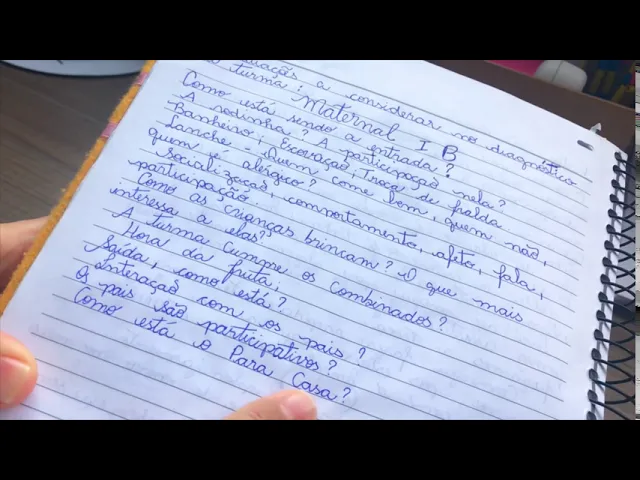 a considerar no diagnóstico
turma: Maternal I B
Como está sendo a entrada?
A rodinha? A participação nela?
Banheiro; Escovação; Troca de fralda
Lanche - Quem come bem, quem não,
quem é alérgico?
Socialização, comportamento, afeto, fala,
participação.
Como as crianças brincam? O que mais
interessa a elas?
A turma cumpre os combinados?
Hora da fruta;
Saída, como está?
Interação com os pais?
Os pais são participativos?
Como está o Para Casa?